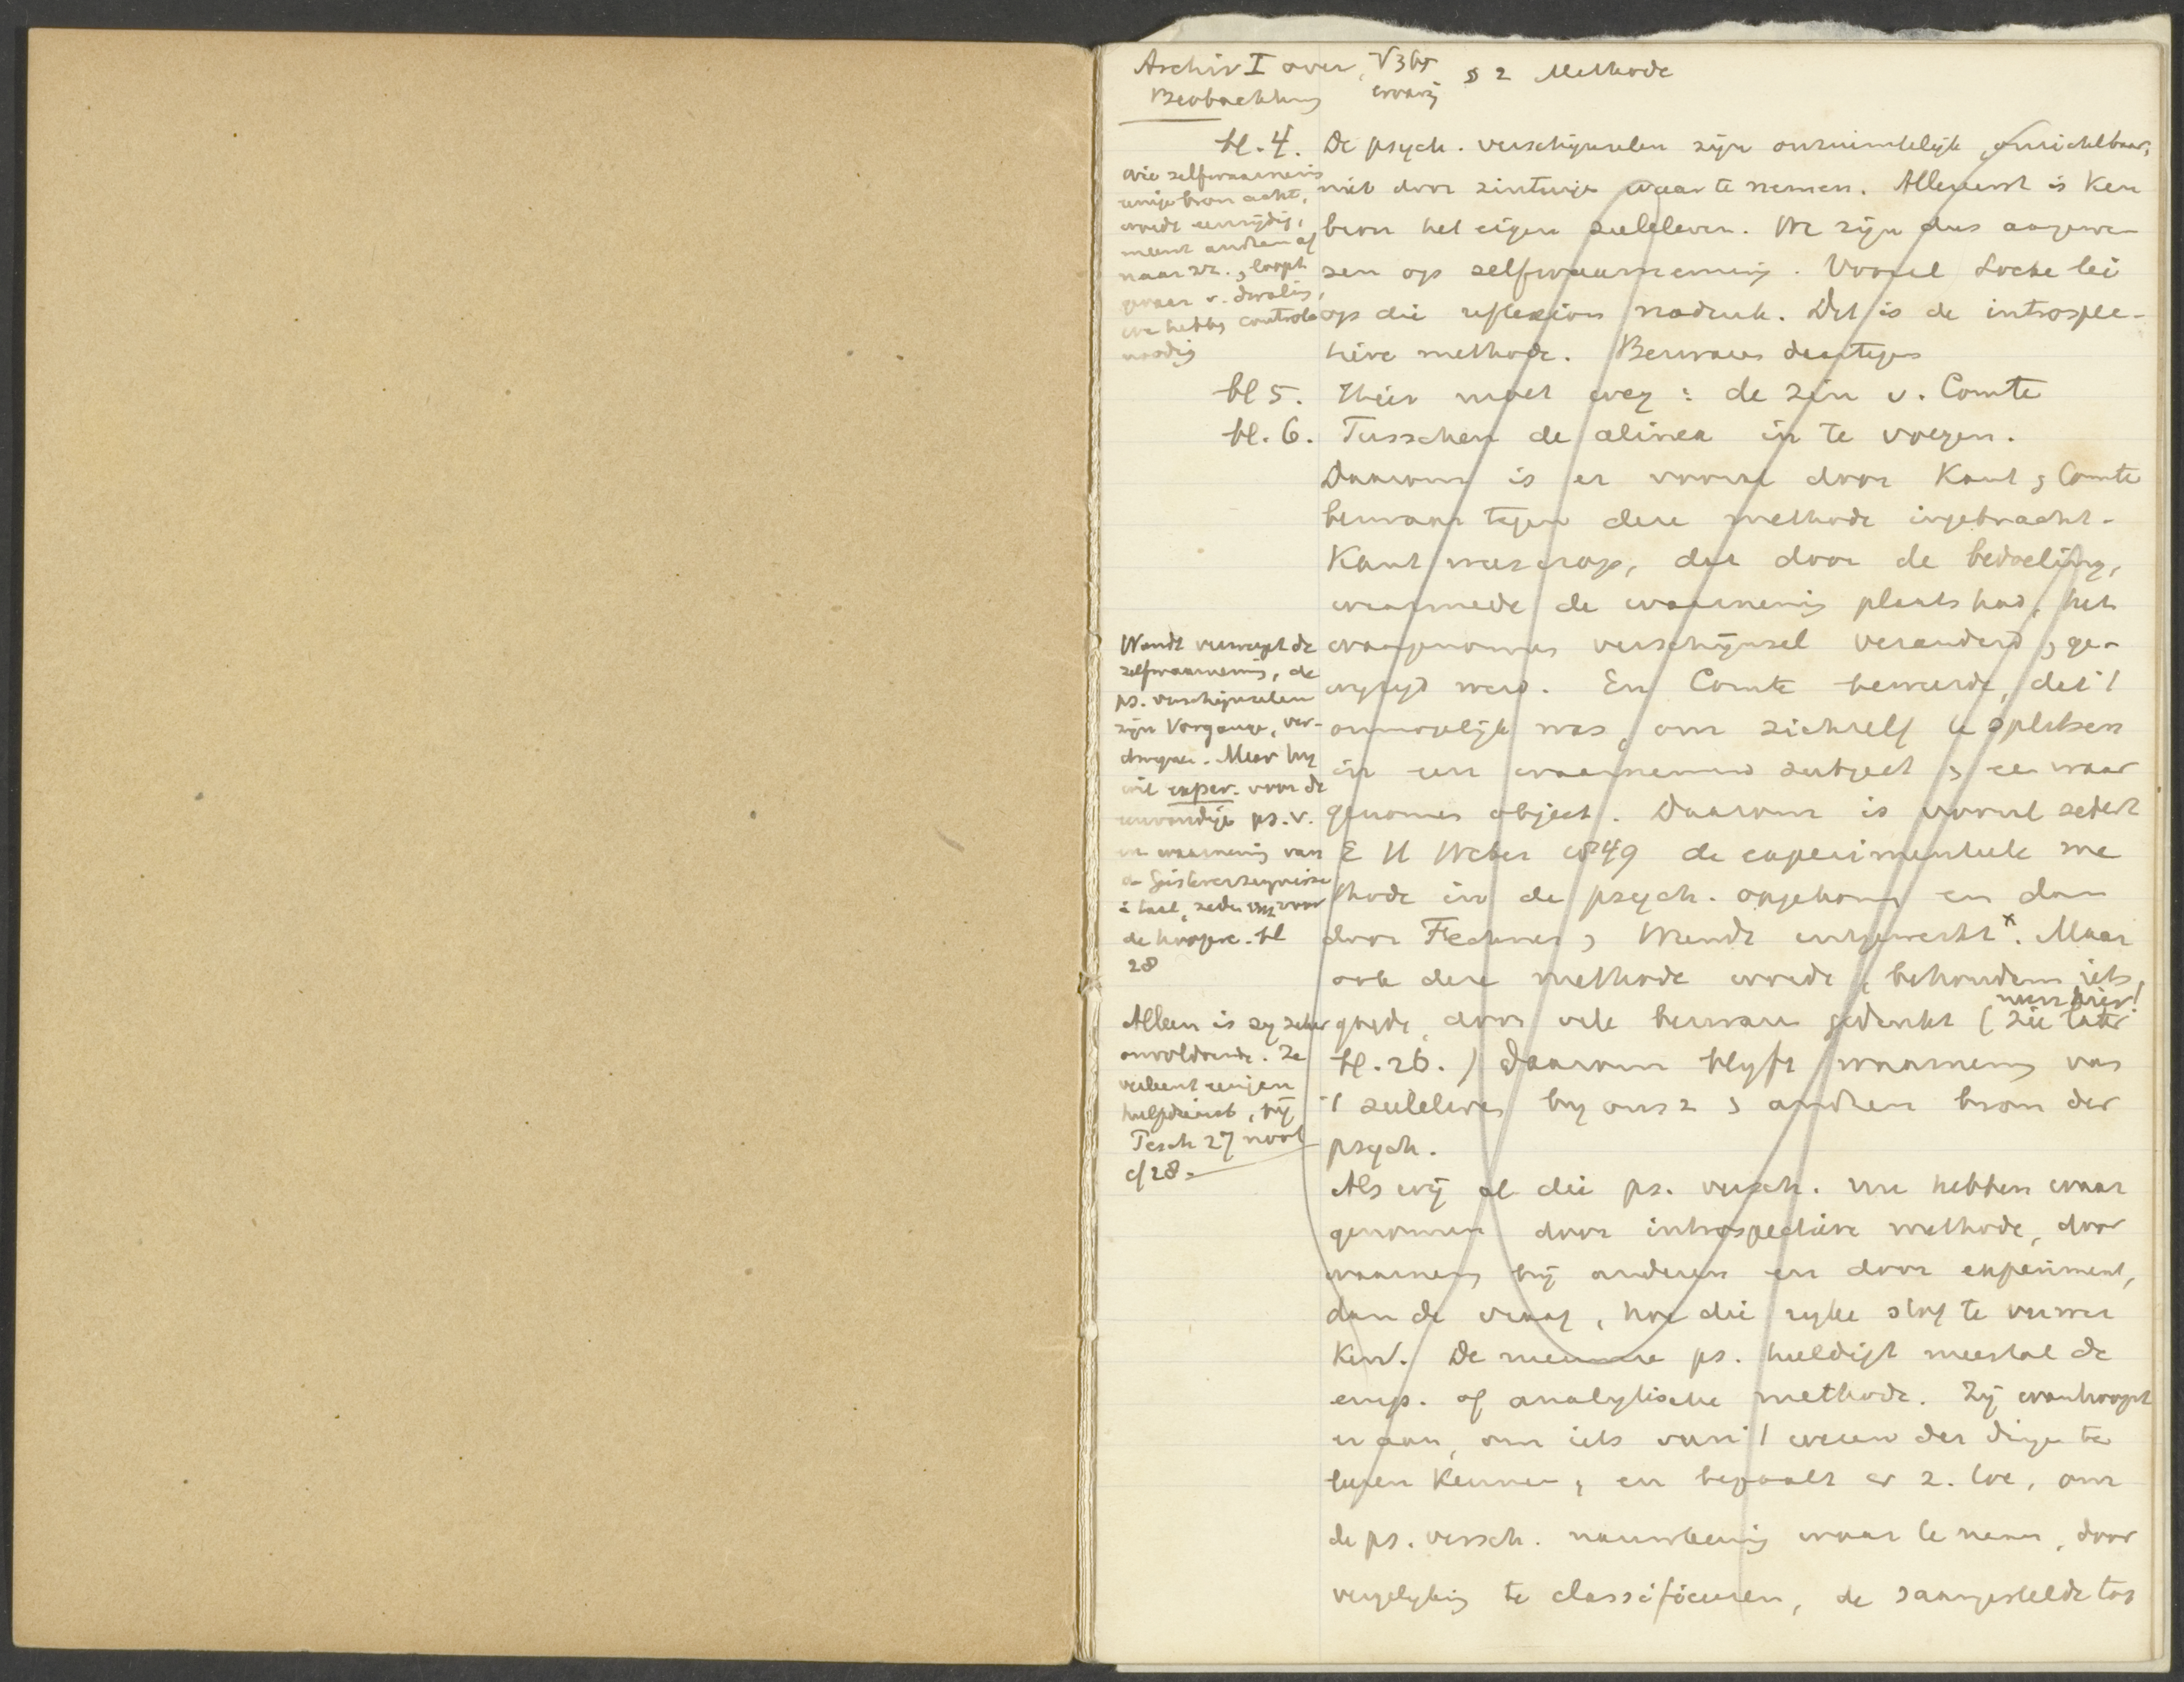 Archiv I over V 365 § 2 Methode
Beobachtung ervaring
bl. 4. De psych. verschijnselen zijn onruimtelijk, onzichtbaar,
wie zelfwaarneming
niet door zintuige waar te nemen. Allereerst is ken
enige bron acht,
wordt eenzijdig,
bron het eigen zieleleven. We zijn dus aangewe-
meent anderen af
naar zr., loopt
zen op zelfwaarneming. Vooral Locke lei
gevaar v. dwaling,
we hebben controle
op die reflexion nadruk. Dit is de introspec-
noodig
tieve methode. Bezwaren daartegen
bl 5. Hier moet weg: de zin v. Comte
bl. 6. Tusschen de alinea in te voegen.
Daarom is er vooral door Kant & Comte
bezwaar tegen deze methode ingebracht.
Kant wees erop, dat door de bedoeling,
waarmede de waarneming plaats had, het
waargenomen verschijnsel veranderd & ge-
wyzigd werd. En Comte beweerde, dat 't
onmogelijk was, om zichzelf te splitsen
in een waarnemend subject & een waar
genomen object. Daarom is vooral sedert
E H Weber 1849 de experimenteele me
thode in de psych. opgekomen en dan
door Fechner & Wundt uitgewerkt x. Maar
ook deze methode wordt, behoudens iets
goeds, door vele bezwaren gedrukt (zie later
neen hier!
bl. 26.) Daarom blyft waarneming van
't zieleleven by ons z & anderen bron der
psych.
Wundt verwerpt de
zelfwaarneming, de
ps. verschijnselen
zijn Vorgange, ver-
dwynen. Maar hy
wil exper. voor de
eenvoudige ps. v.
en waarneming van
de Geisteserzeugnisse
i taal, zeden enz voor
de hoogere. bl
28
Alleen is zy zeker
onvoldoende. Ze
verleent eenigen
hulpdienst, bij
Pesch 27 noot
cf 28.
Als wij al die ps. versch. nu hebben waar
genomen door introspectieve methode, door
waarneming bij anderen en door experiment,
dan de vraag, hoe die ryke stof te verwer
ken. De nieuwere ps. huldigt meestal de
emp. of analytische methode. Zij wanhoopt
er aan, om iets van 't wezen der dingen te
leeren kennen, en bepaalt er z. toe, om
de ps. versch. nauwkeurig waar te nemen, door
vergelyking te classificeeren, de saamgestelde tot